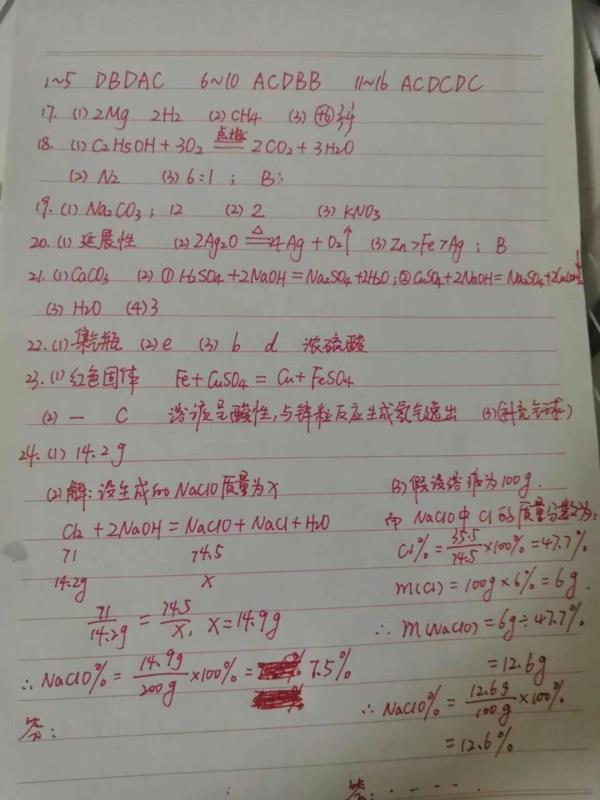 1~5 DBDAC 6~10 ACDBB 11~16 ACDCDC
17. (1) 2Mg 2H₂ (2) CH4 (3)
18. (1) C2H5OH + 3O₂ 点燃 2CO₂ + 3H₂O
(2) N₂ (3) 6:1 ; B;
19. (1) Na₂CO₃ ; 12 (2) 2 (3) KNO₃
20. (1) 延展性 (2) 2Ag₂O =△= 4Ag + O₂↑ (3) Zn > Fe > Ag ; B
21. (1) CaCO₃ (2) ① H₂SO₄ + 2NaOH = Na₂SO₄ + 2H₂O ; ② CuSO₄ + 2NaOH = Na₂SO₄ +
(3) H₂O (4) 3
22. (1) 集气瓶 (2) e (3) b d 浓硫酸
23. (1) 红色固体 Fe + CuSO₄ = Cu + FeSO₄
(2) 一 C 溶液呈酸性,与锌粒反应生成氢气逸出 (3)
24. (1) 14.2g
(2) 解: 设生成的 NaClO 质量为 X
Cl₂ + 2NaOH = NaClO + NaCl + H₂O
71 74.5
14.2g X
71/14.2g = 74.5/X, X = 14.9g
∴ NaClO% = 14.9g/200g ×100% = 7.5%
答:
(3) 假设溶液为100g.
NaClO中 Cl 的质量分数为:
Cl% = 35.5/74.5 ×100% = 47.7%
m(Cl) = 100g × 6% = 6g.
∴ m(NaClO) = 6g ÷ 47.7%
= 12.6g
∴ NaClO% = 12.6g/100g ×100%
= 12.6%
答: . - - - .